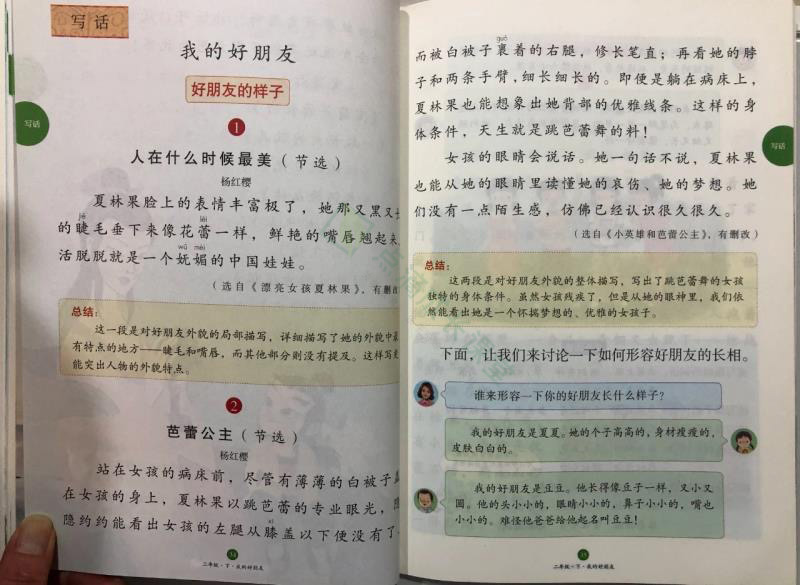 写话
我的好朋友
好朋友的样子
1
人在什么时候最美（节选）
杨红樱
夏林果脸上的表情丰富极了，她那又黑又长
jié lěi
的睫毛垂下来像花蕾一样，鲜艳的嘴唇翘起来，
wǔ mèi
活脱脱就是一个妩媚的中国娃娃。
（选自《漂亮女孩夏林果》，有删改
总结：
这一段是对好朋友外貌的局部描写，详细描写了她的外貌中最
有特点的地方——睫毛和嘴唇，而其他部分则没有提及。这样写更
能突出人物的外貌特点。
2
芭蕾公主（节选）
杨红樱
站在女孩的病床前，尽管有薄薄的白被子盖
在女孩的身上，夏林果以跳芭蕾的专业眼光，隐
隐约约能看出女孩的左腿从膝盖以下便没有了
34
二年级·下·我的好朋友
写话
guǒ
而被白被子裹着的右腿，修长笔直；再看她的脖
子和两条手臂，细长细长的。即便是躺在病床上，
夏林果也能想象出她背部的优雅线条。这样的身
体条件，天生就是跳芭蕾舞的料！
女孩的眼睛会说话。她一句话不说，夏林果
也能从她的眼睛里读懂她的哀伤、她的梦想。她
们没有一点陌生感，仿佛已经认识很久很久。
（选自《小英雄和芭蕾公主》，有删改）
写话
总结：
这两段是对好朋友外貌的整体描写，写出了跳芭蕾舞的女孩
独特的身体条件。虽然女孩残疾了，但是从她的眼神里，我们依
然能看出她是一个怀揣梦想的、优雅的女孩子。
下面，让我们来讨论一下如何形容好朋友的长相。
谁来形容一下你的好朋友长什么样子？
我的好朋友是夏夏。她的个子高高的，身材瘦瘦的，
皮肤白白的。
我的好朋友是豆豆。他长得像豆子一样，又小又
圆。他的头小小的，眼睛小小的，鼻子小小的，嘴也
小小的。难怪他爸爸给他起名叫豆豆！
35
二年级·下·我的好朋友